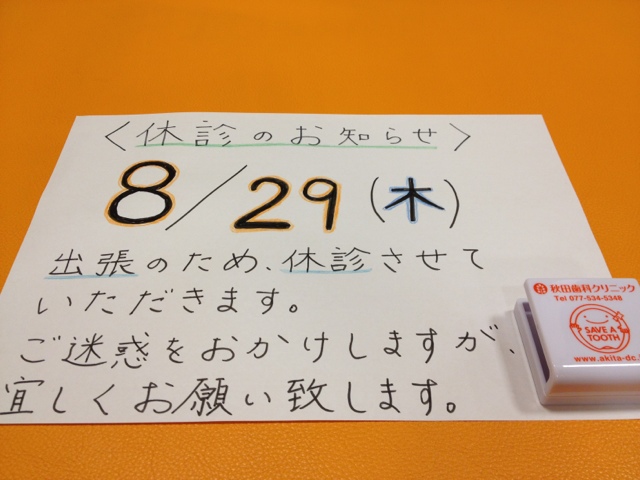 〈休診のお知らせ〉
8/29(木)
出張のため、休診させて
いただきます。
ご迷惑をおかけしますが、
宜しくお願い致します。
秋田歯科クリニック
Tel 077-534-5348
SAVE A
TOOTH
www.akita-dc.